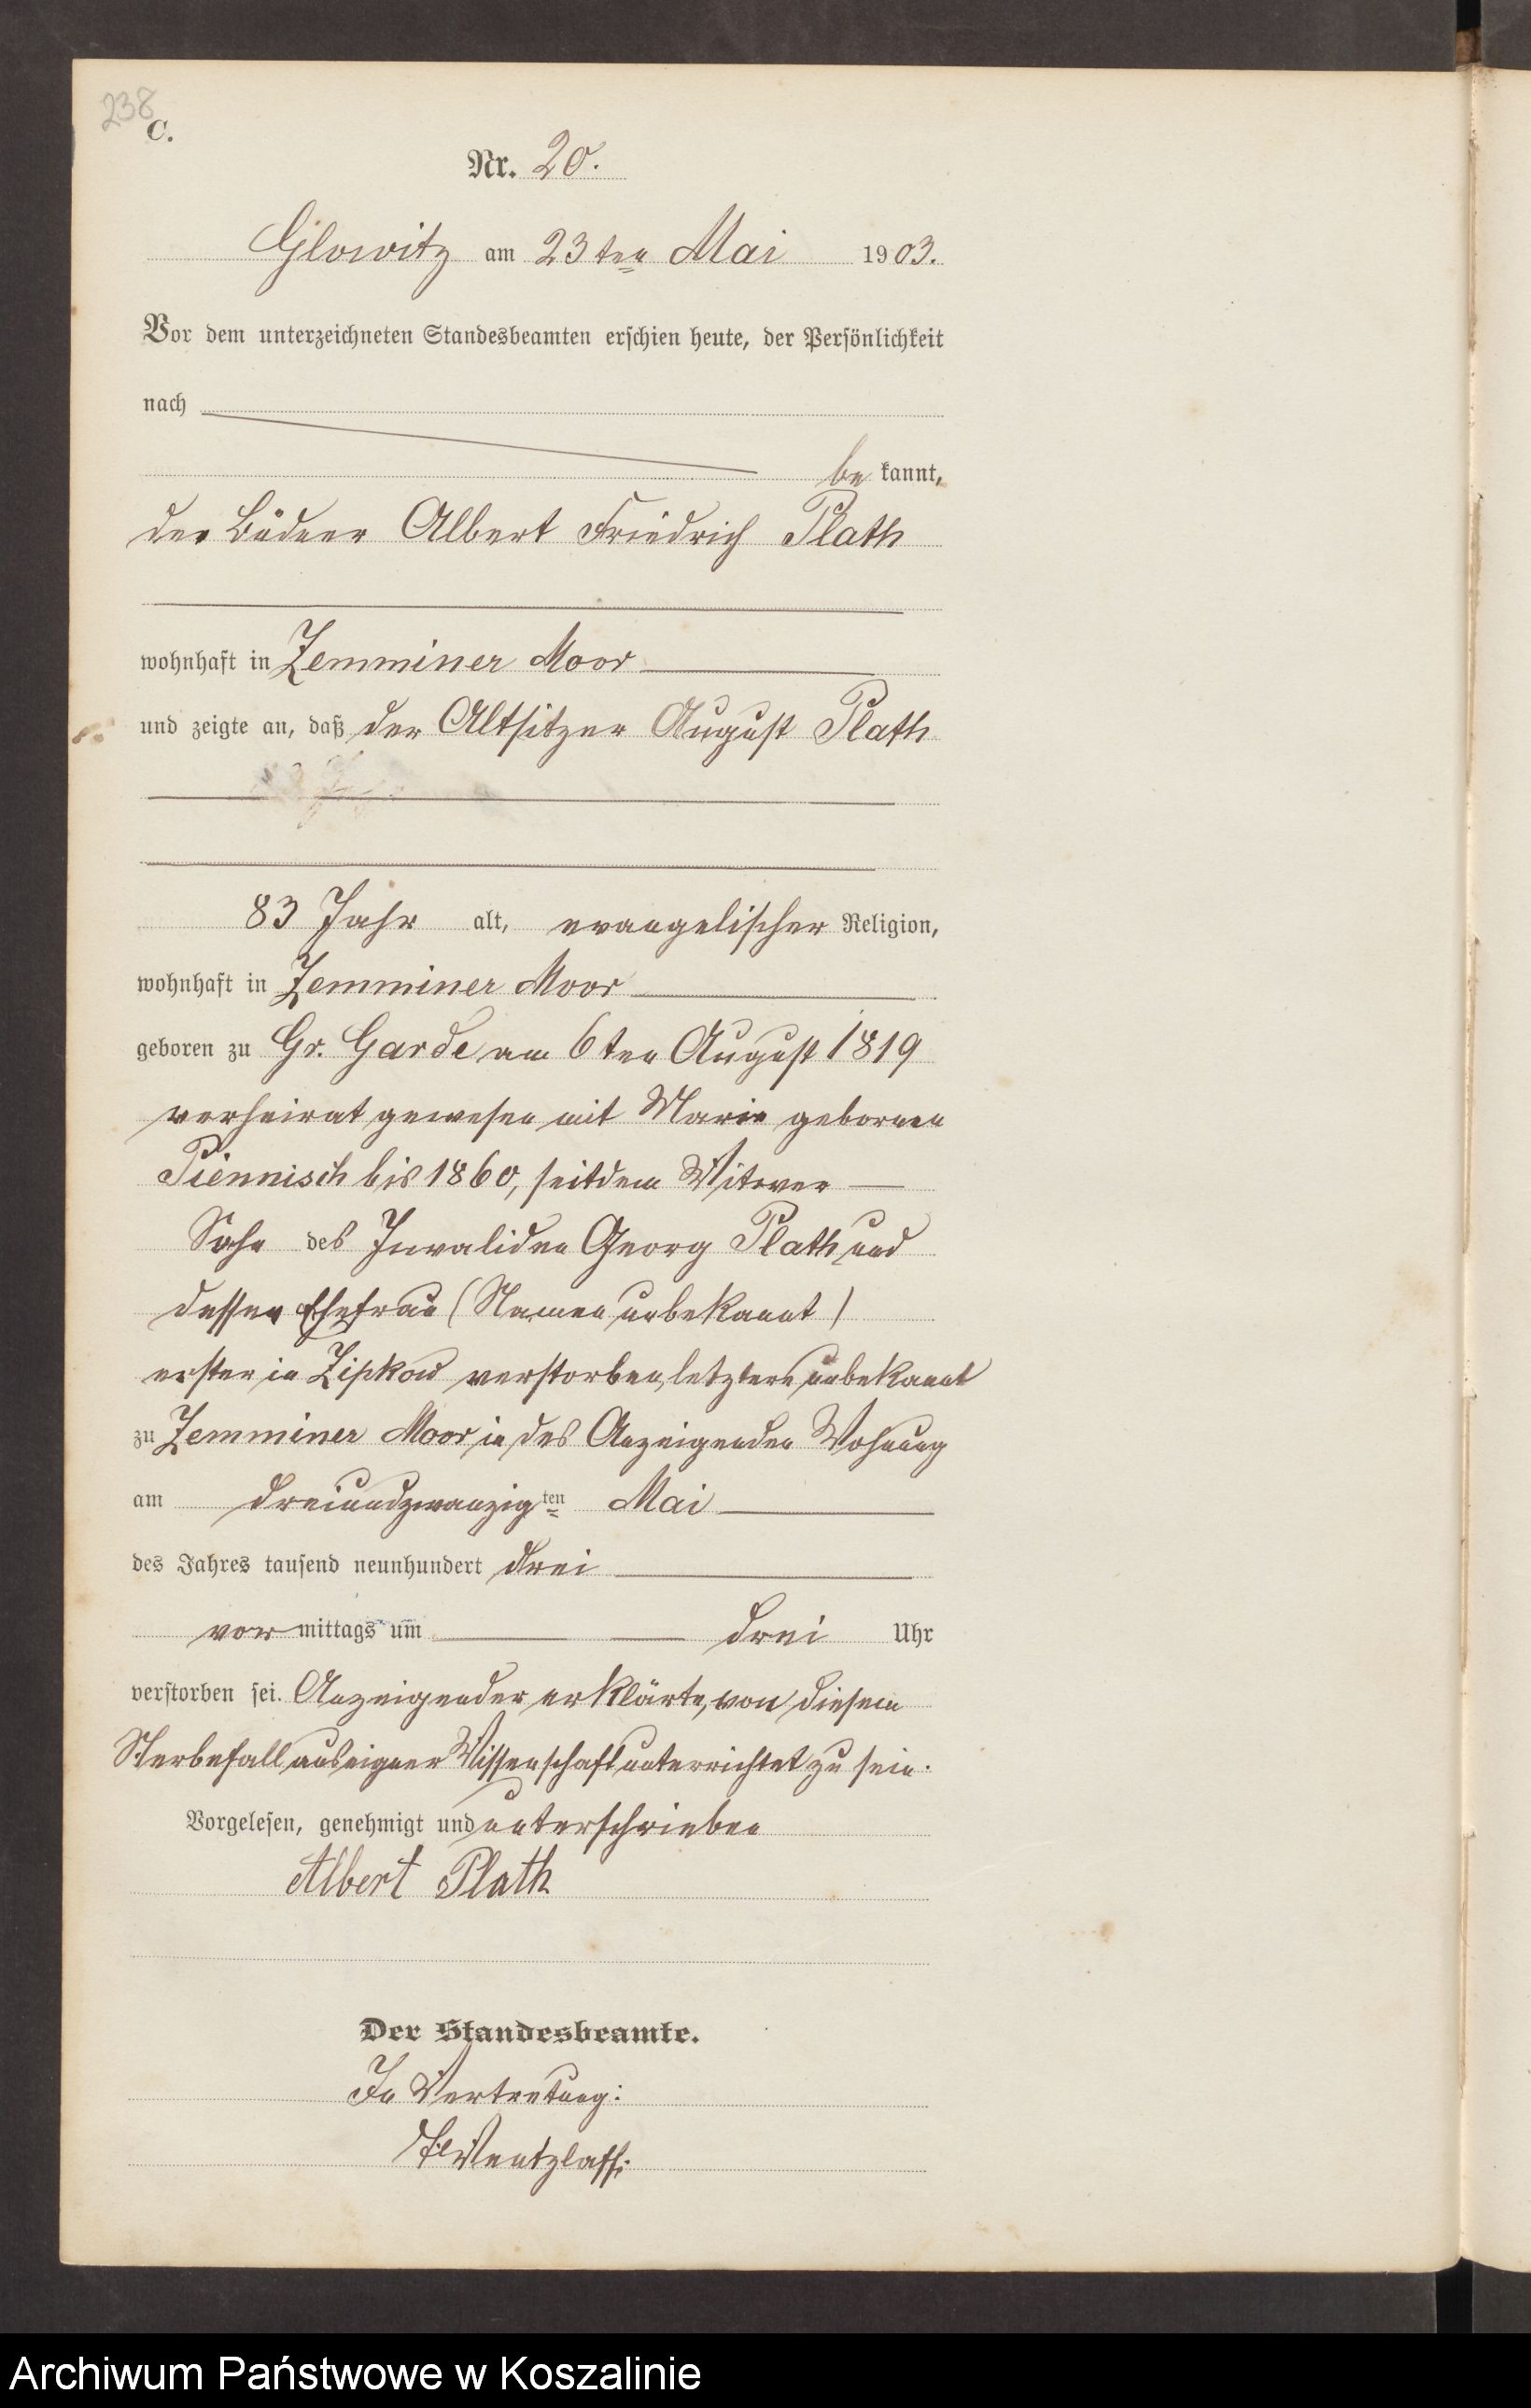 238
C.
Nr. 20.
Glowitz am 23ten Mai 1903.
Vor dem unterzeichneten Standesbeamten erschien heute, der Persönlichkeit
nach
be kannt,
der Büdner Albert Friedrich Plath
wohnhaft in Zemminer Moor
und zeigte an, daß der Altsitzer August Plath
83 Jahr alt, evangelischer Religion,
wohnhaft in Zemminer Moor
geboren zu Gr. Garde am 6ten August 1819
verheirat gewesen mit Marie gebornen
Piennisch bis 1860, seitdem Witwer
Sohn des Invaliden Georg Plath und
dessen Ehefrau (Namen unbekannt)
erster in Zipkow verstorben, letztere unbekannt
zu Zemminer Moor in des Anzeigenden Wohnung
am dreiundzwanzigten Mai
des Jahres tausend neunhundert drei
vor mittags um drei Uhr
verstorben sei. Anzeigender erklärte, von diesem
Sterbefall aus eigner Wissenschaft unterrichtet zu sein.
Vorgelesen, genehmigt und unterschrieben
Albert Plath
Der Standesbeamte.
In Vertretung:
Wentzlaff.
Archiwum Państwowe w Koszalinie